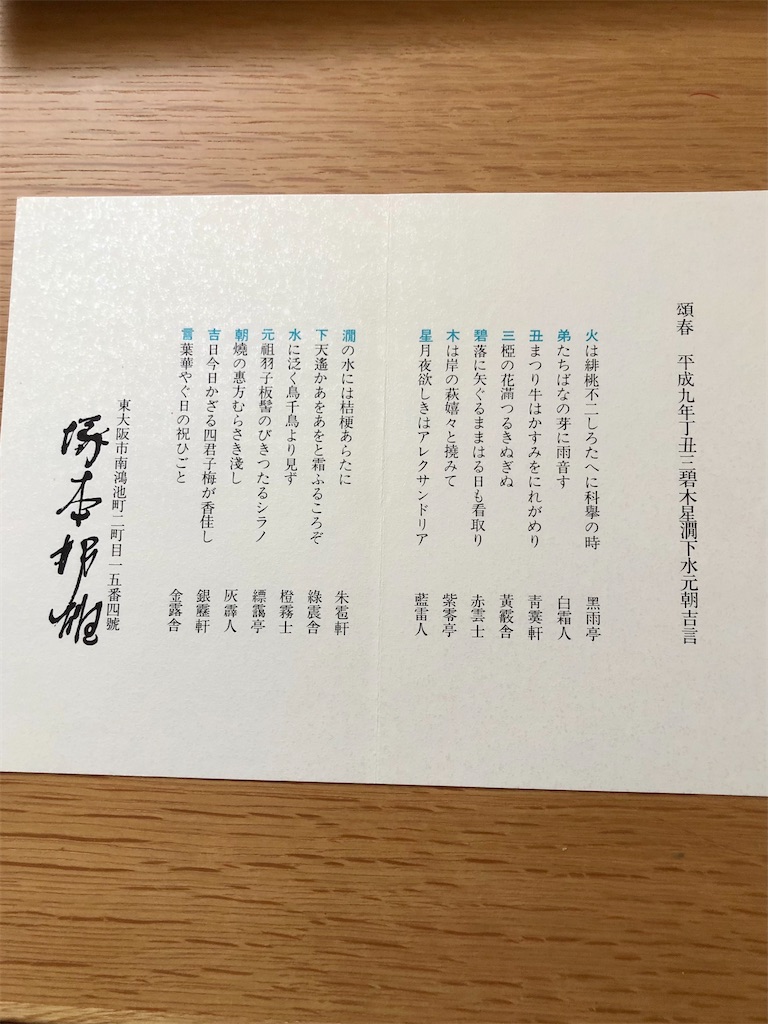 頌春　平成九年丁丑三碧木星澗下水元朝吉言
火は緋桃不二しろたへに科擧の時　黑雨亭
弟たちばなの芽に雨音す　白霜人
丑まつり牛はかすみをにれがめり　靑霙軒
三椏の花滿つるきぬぎぬ　黃霰舍
碧落に矢ぐるままはる日も看取り　赤雲士
木は岸の萩嬉々と撓みて　紫零亭
星月夜欲しきはアレクサンドリア　藍雷人
澗の水には桔梗あらたに　朱雹軒
下天遙かあをあをと霜ふるころぞ　綠震舍
水に泛く鳥千鳥より見ず　橙霧士
元祖羽子板髻のびきつたるシラノ　縹靄亭
朝燒の惠方むらさき淺し　灰霹人
吉日今日かざる四君子梅が香佳し　銀靂軒
言葉華やぐ日の祝ひごと　金露舍
東大阪市南鴻池町二町目一五番四號
塚本邦雄